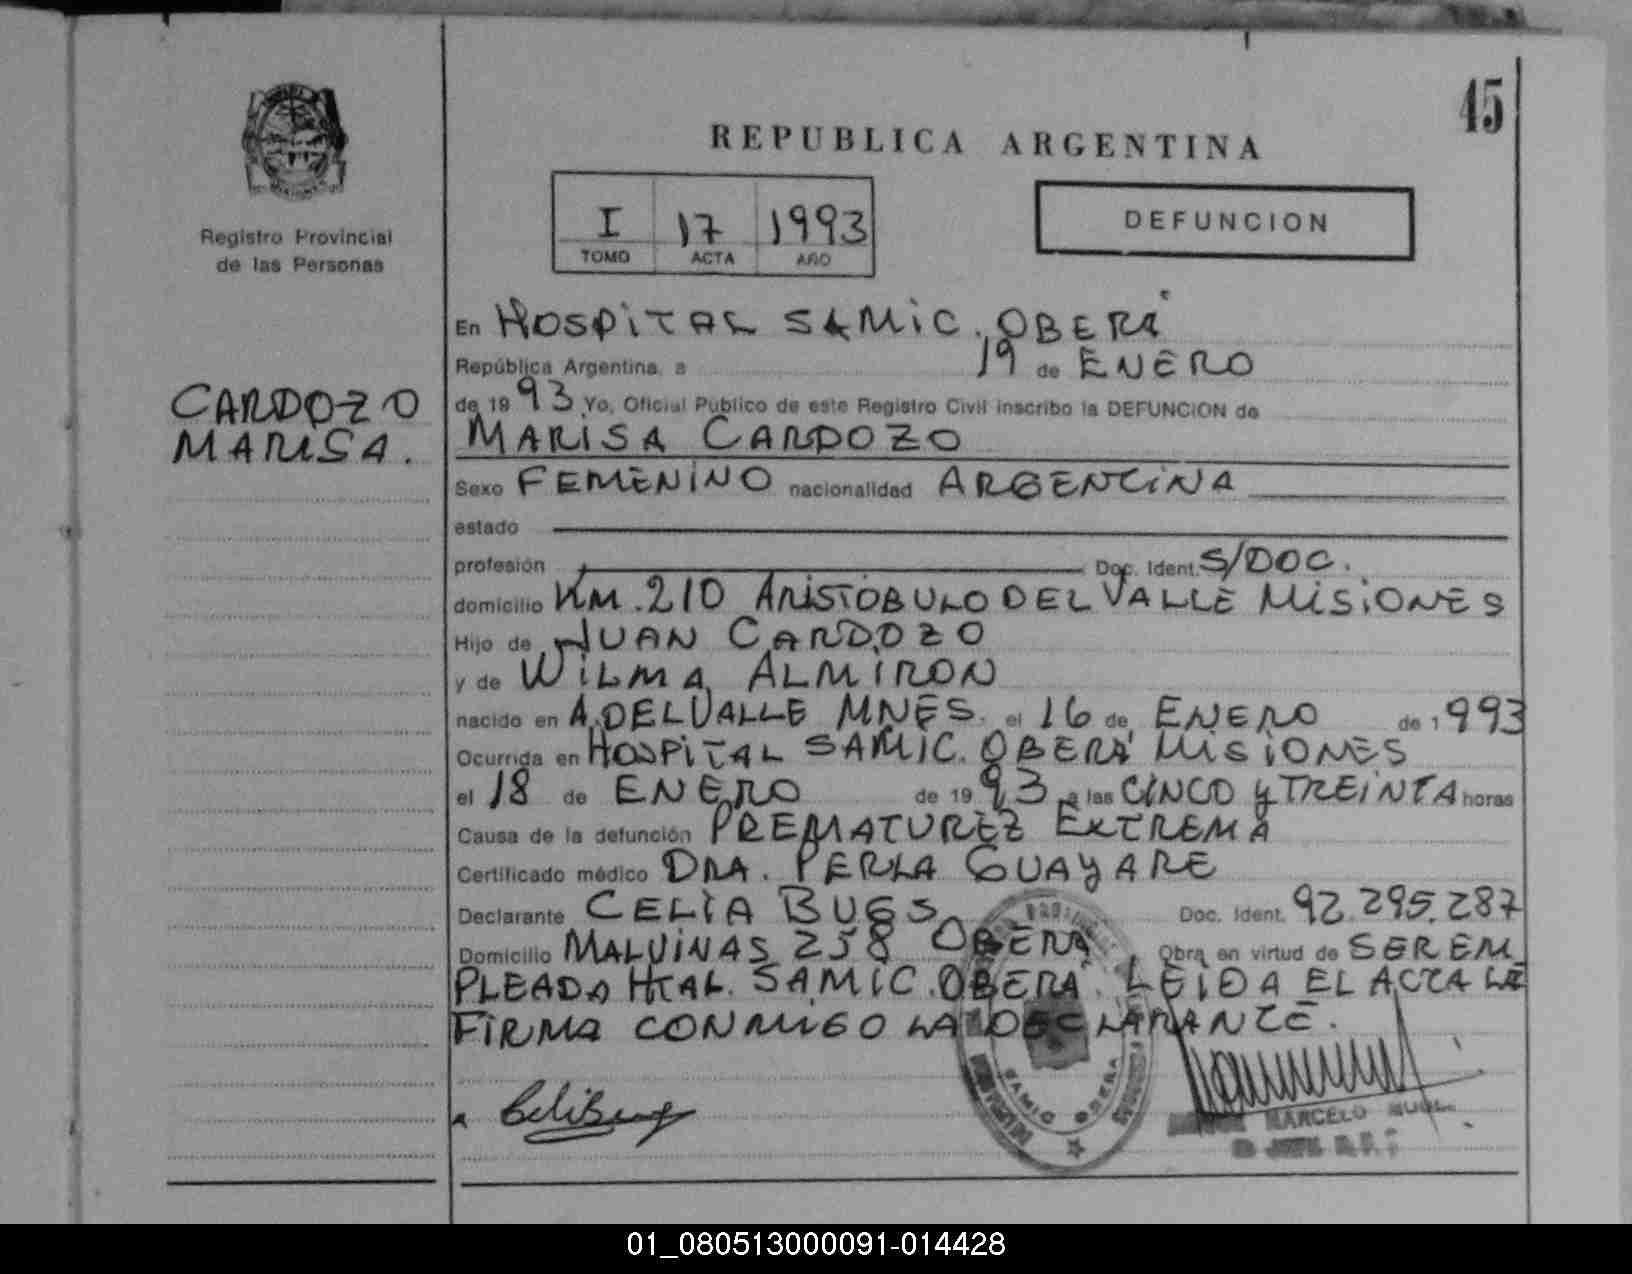 45
REPUBLICA ARGENTINA
I 17 1993
TOMO ACTA AÑO
DEFUNCION
Registro Provincial
de las Personas
CARDOZO
MARISA.
En HOSPITAL SAMIC. OBERÁ
República Argentina, a 19 de ENERO
de 1993 Yo, Oficial Público de este Registro Civil inscribo la DEFUNCION de
MARISA CARDOZO
Sexo FEMENINO nacionalidad ARGENTINA
estado
profesión Doc. Ident. S/DOC.
domicilio KM. 210 ARISTÓBULO DEL VALLE MISIONES
Hijo de JUAN CARDOZO
y de WILMA ALMIRON
nacido en A. DEL VALLE MNES. el 16 de ENERO de 1993
Ocurrida en HOSPITAL SAMIC. OBERÁ MISIONES
el 18 de ENERO de 1993 a las CINCO y TREINTA horas
Causa de la defunción PREMATUREZ EXTREMA
Certificado médico DRA. PERLA GUAYARE
Declarante CELIA BUGS Doc. Ident. 92.295.287
Domicilio MALVINAS 258 OBERÁ Obra en virtud de SER EM
PLEADA HTAL. SAMIC. OBERÁ. LEIDA EL ACTA LA
FIRMA CONMIGO LA DECLARANTE.
SAMIC OBERA
MARCELO
01_080513000091-014428